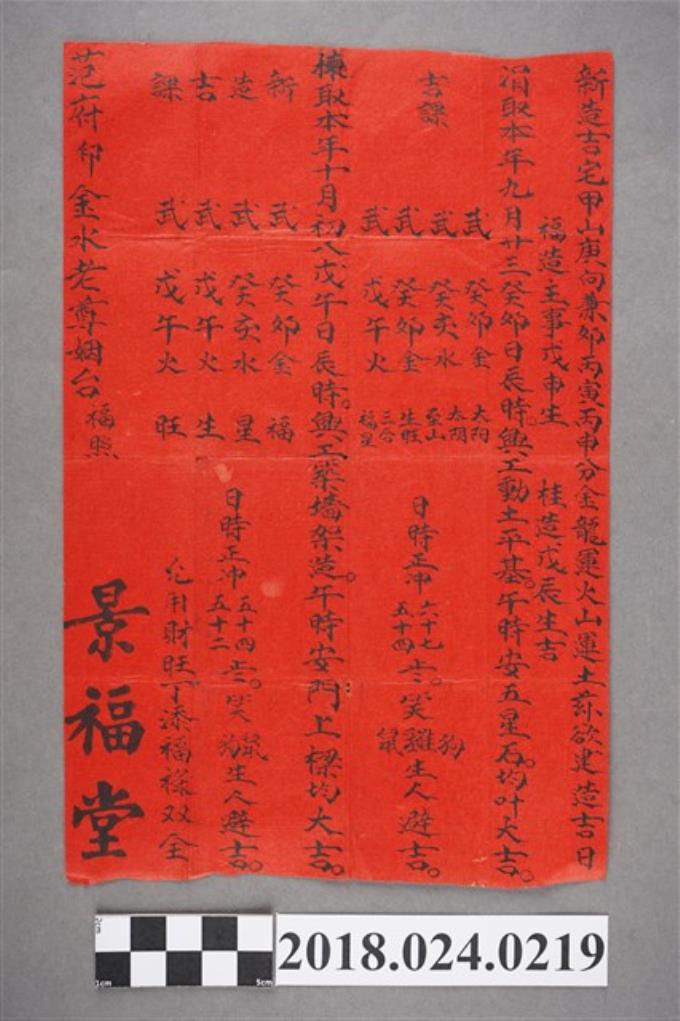 新造吉宅甲山庚向兼卯丙寅丙申分金龍運火山運土茲欲建造吉日
福造主事戊申生 桂造戊辰生吉
涓取本年九月廿三癸卯日辰時。興工動土平基。午時安五星石。均叶大吉。
吉課
武 癸卯金 太陽
武 癸亥水 太陰
武 癸卯金 生旺
武 戊午火 三合福星
日時正冲六十七五十四歲。
狗雞鼠生人避吉。
揀取本年十月初八戊午日辰時。興工築墻架造。午時安門上樑均大吉。
新造吉課
武 癸卯金 福
武 癸亥水 星
武 戊午火 生
武 戊午火 旺
日時正冲五十四五十二歲。
鼠狗生人避吉。
允用財旺丁添福祿双全
范府印金水老尊姻台福照
景福堂
2018.024.0219
1cm
5cm